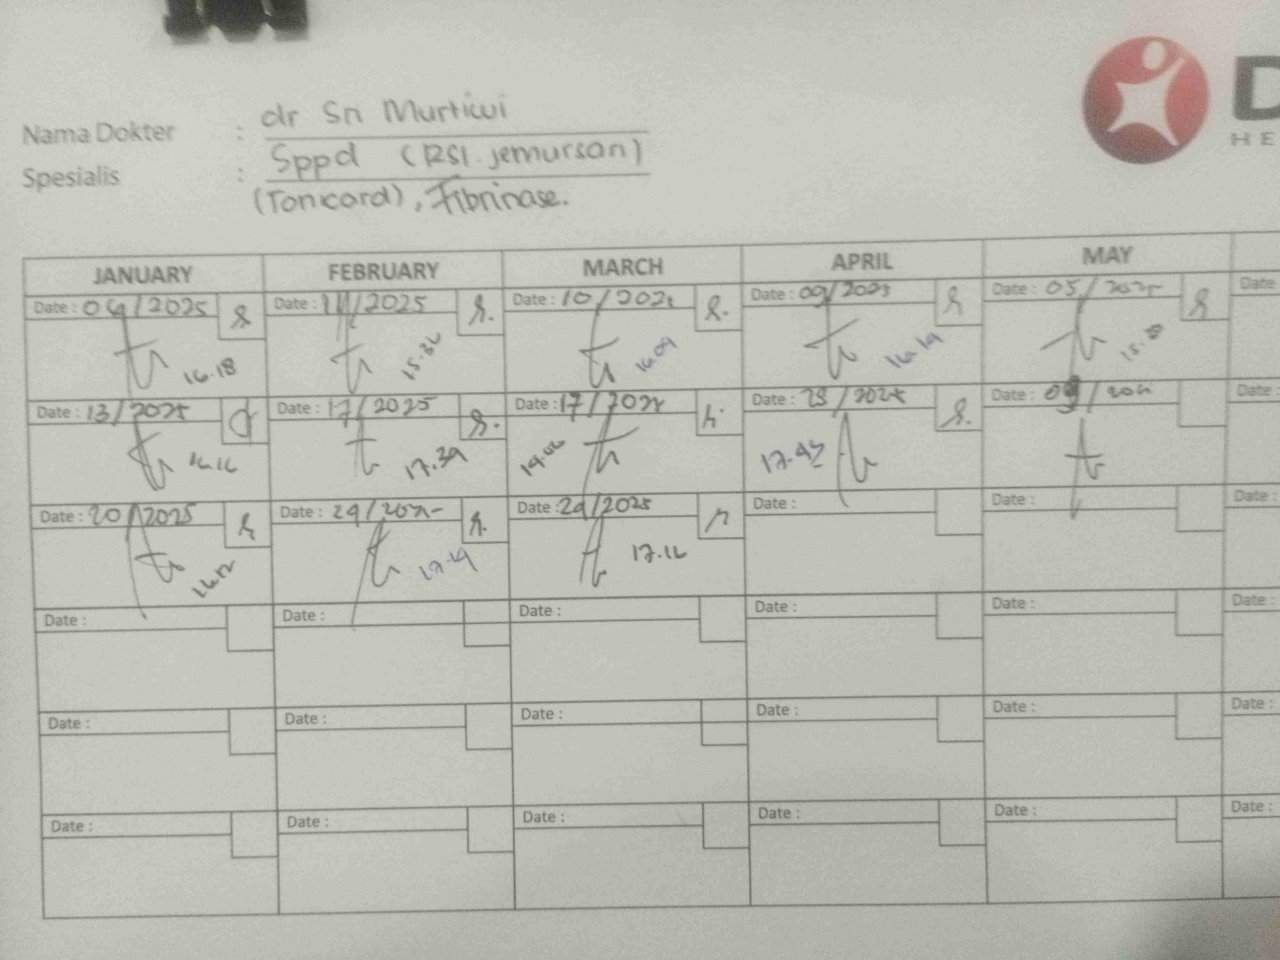 Nama Dokter : dr Sri Murtiwi
Spesialis : Sppd (RSI. Jemursari)
(Tonicard), Fibrinase.
D
HE
JANUARY FEBRUARY MARCH APRIL MAY
Date : 09/2025 Date : 11/2025 Date : 10/2025 Date : 09/2025 Date : 05/2025 Date
16.18 15.36 16.09 16.19
Date : 13/2025 Date : 17/2025 Date : 17/2025 Date : 29/2025 Date : 09/2025 Date :
16.16 17.39 19.06 17.47
Date : 20/2025 Date : 24/2025 Date : 24/2025 Date : Date : Date :
16.12 17.19 17.16
Date : Date : Date : Date : Date : Date :
Date : Date : Date : Date : Date : Date :
Date : Date : Date : Date : Date : Date :